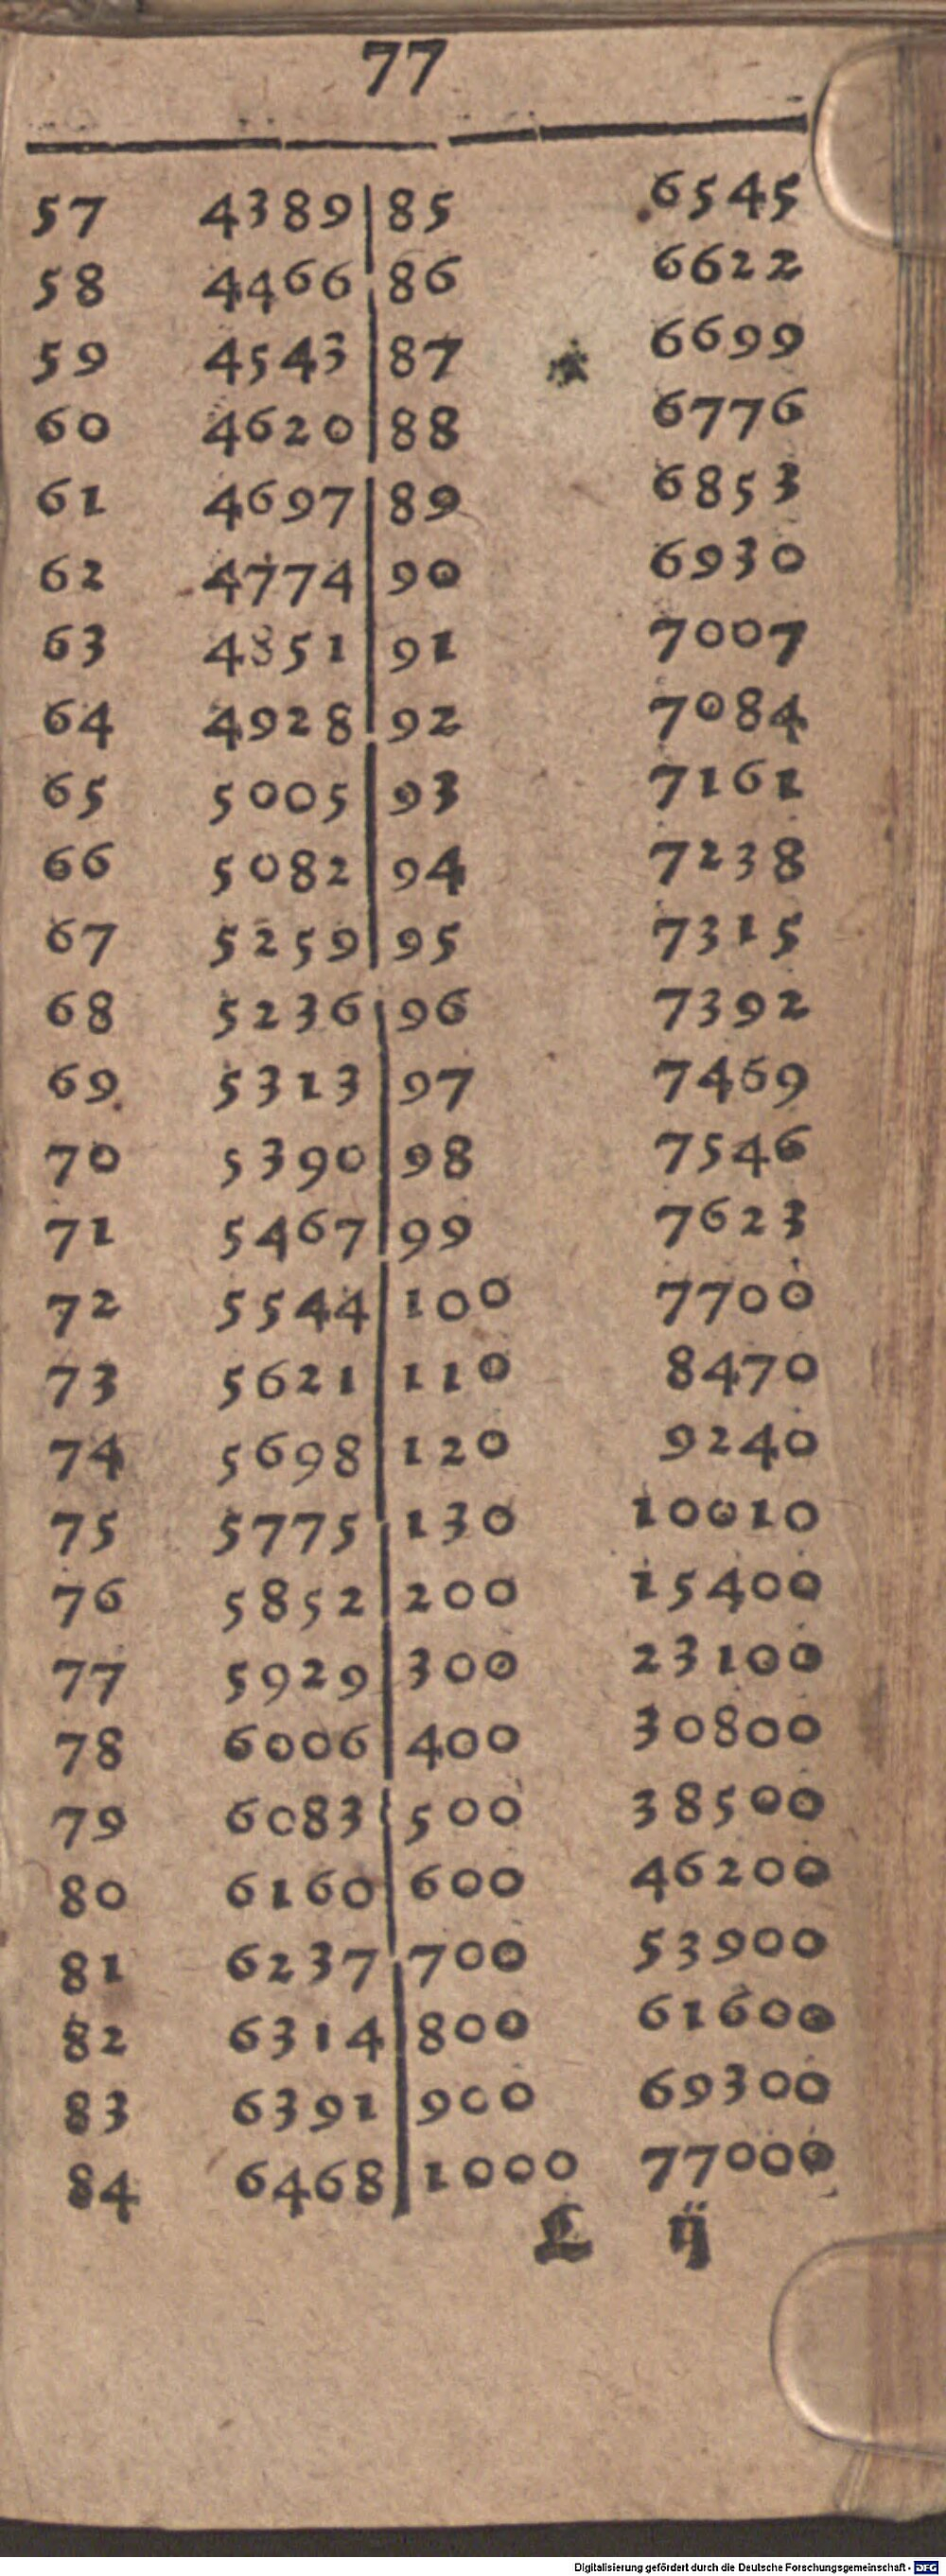 77
57 4389 85 6545
58 4466 86 6622
59 4543 87 6699
60 4620 88 6776
61 4697 89 6853
62 4774 90 6930
63 4851 91 7007
64 4928 92 7084
65 5005 93 7161
66 5082 94 7238
67 5259 95 7315
68 5236 96 7392
69 5313 97 7469
70 5390 98 7546
71 5467 99 7623
72 5544 100 7700
73 5621 110 8470
74 5698 120 9240
75 5775 130 10010
76 5852 200 15400
77 5929 300 23100
78 6006 400 30800
79 6083 500 38500
80 6160 600 46200
81 6237 700 53900
82 6314 800 61600
83 6391 900 69300
84 6468 1000 77000
L ij
Digitalisierung gefördert durch die Deutsche Forschungsgemeinschaft - DFG